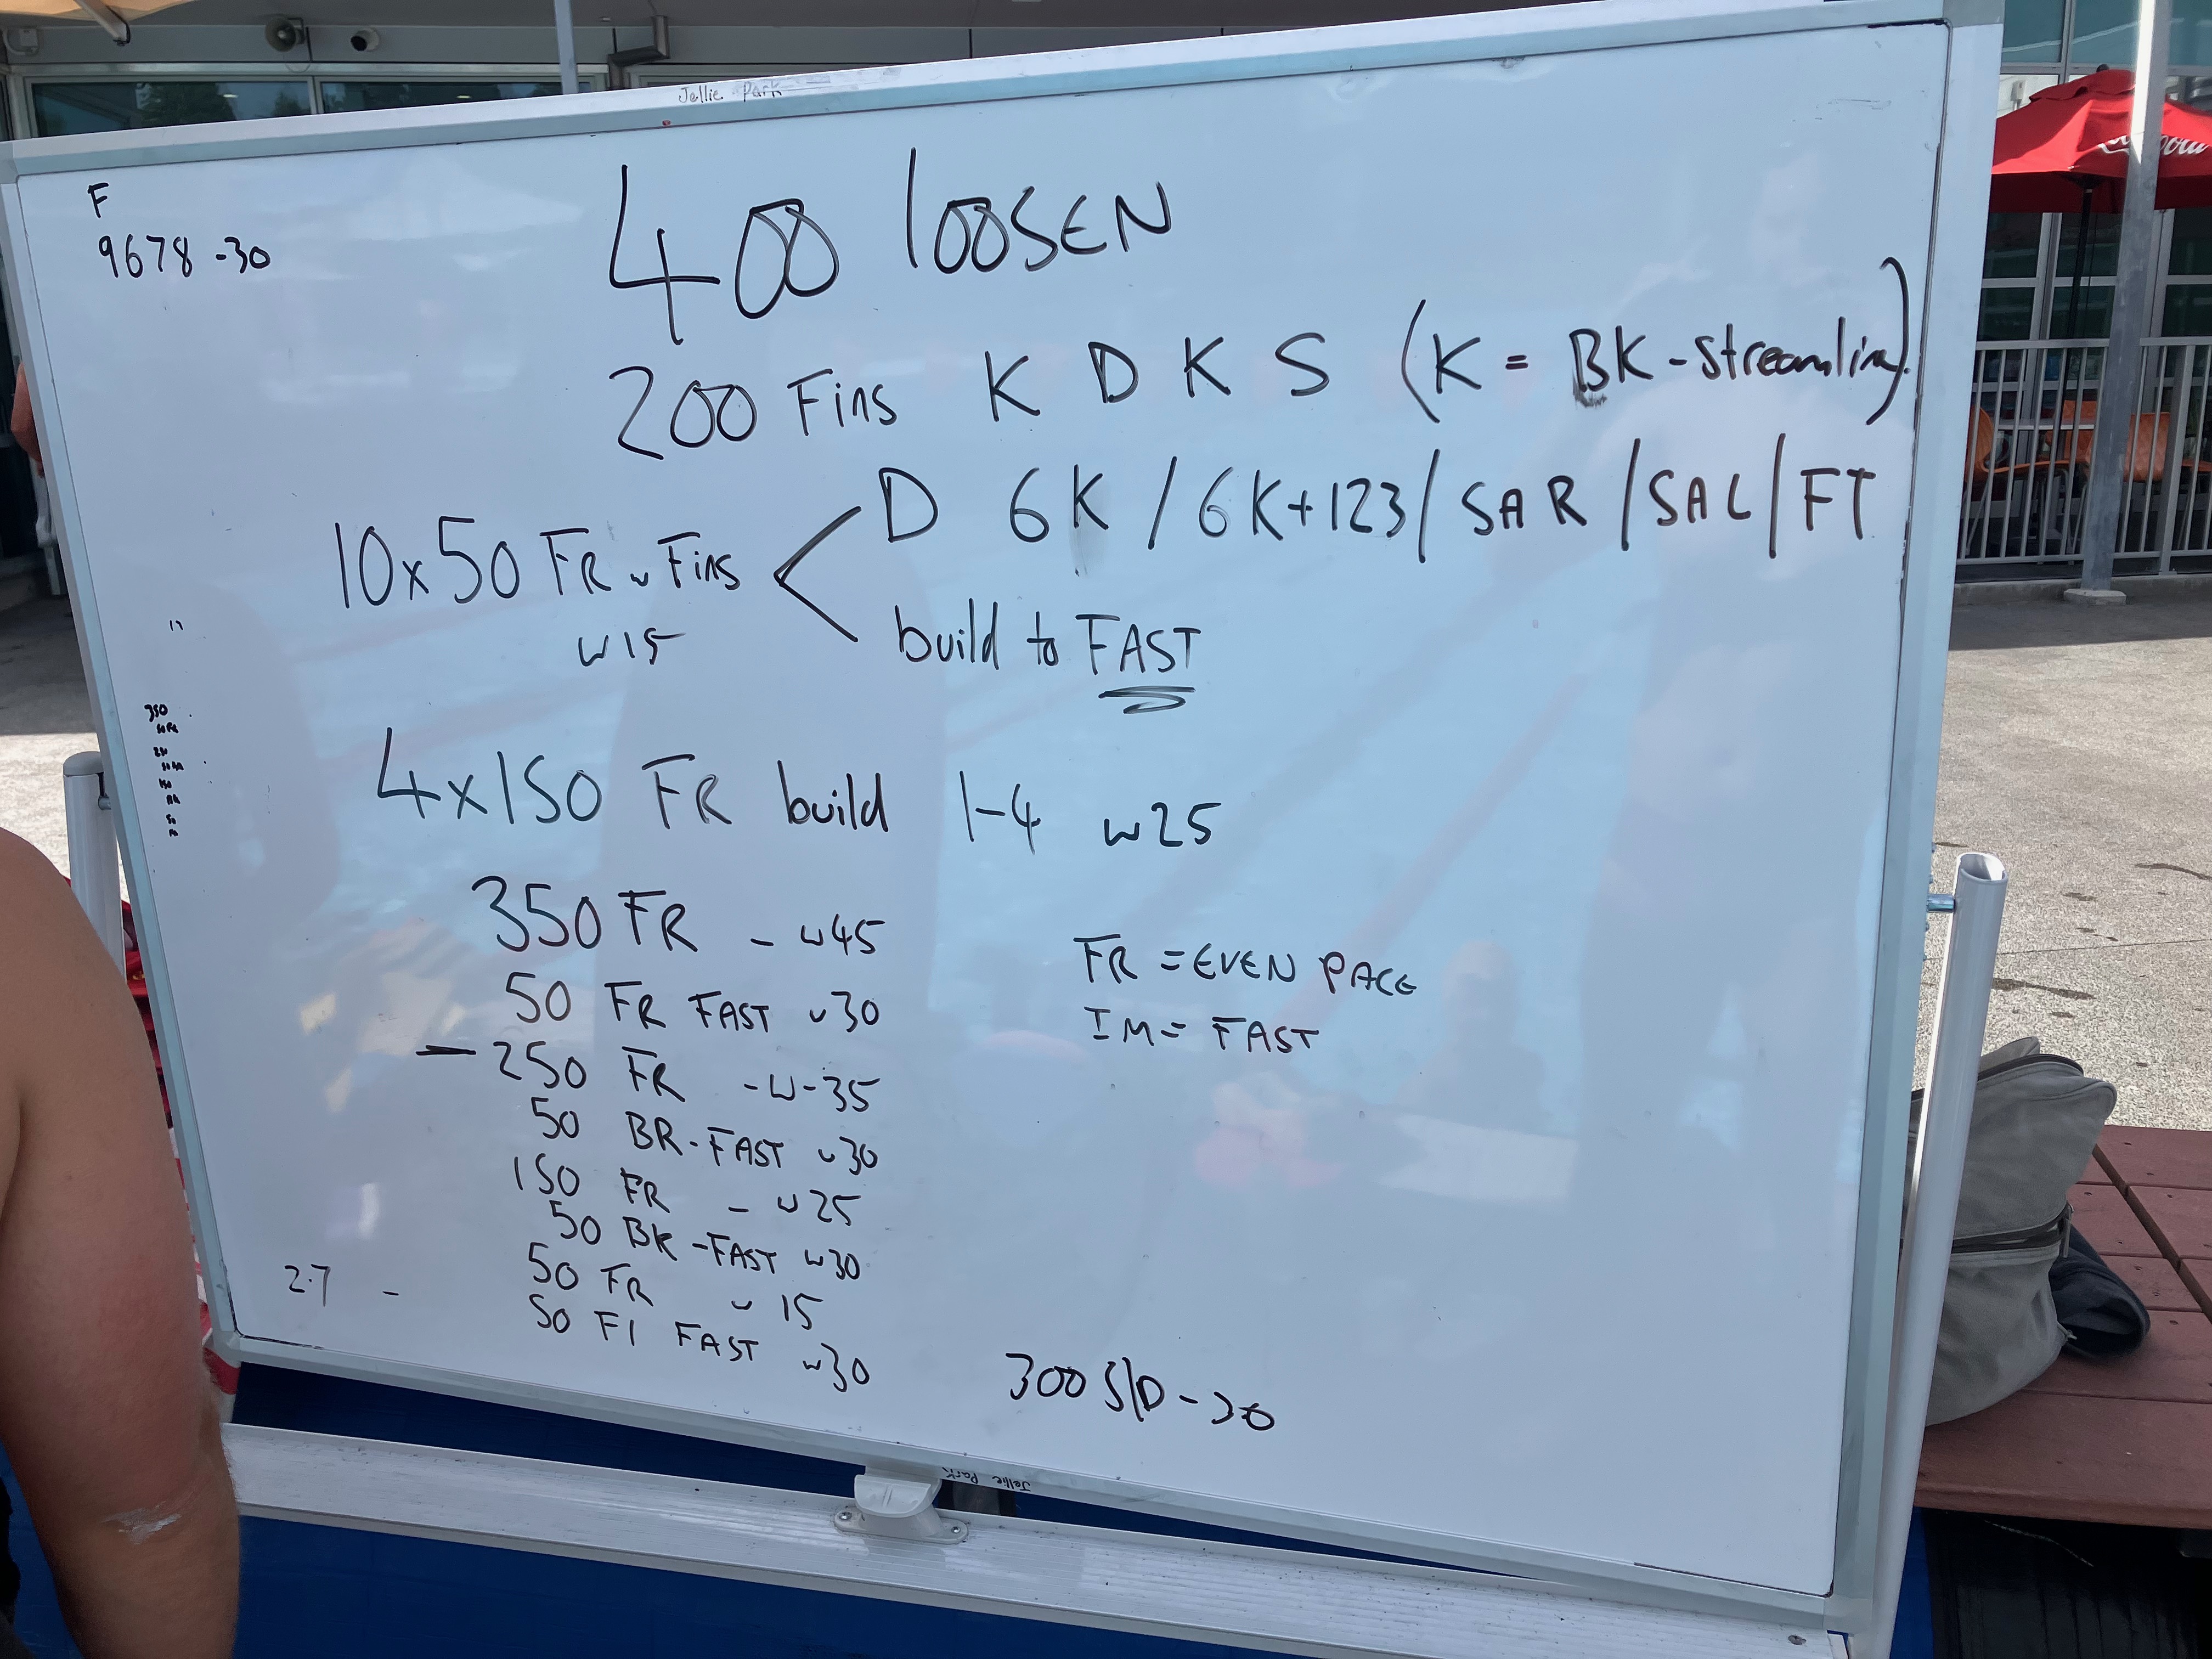 Jellie Park
F
9678 -30
400 loosen
200 Fins K D K S (K = BK-Streamline)
D 6K / 6K+123 / SAR / SAL / FT
10x50 FR w Fins
w15
build to FAST
4x150 FR build 1-4 w25
350
350 FR - w45
50 FR FAST w30
- 250 FR - w - 35
50 BR - FAST w30
150 FR - w25
50 BK - FAST w30
50 FR w 15
50 F1 FAST w30
FR = EVEN PACE
IM = FAST
2.7 -
300 S/D - 30
Jellie Park